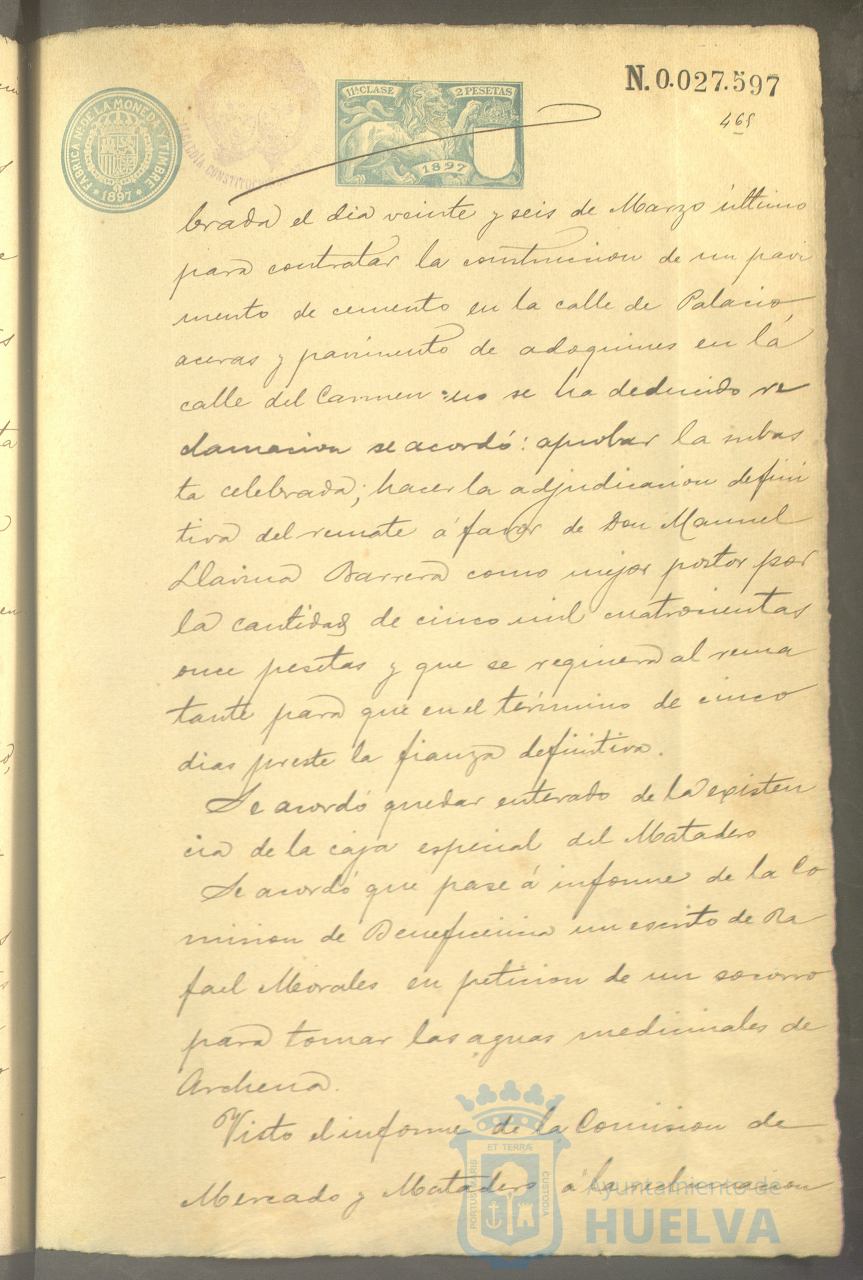 N. 0.027.597
465
11ª CLASE 2 PESETAS
1897
FABRICA Nal DE LA MONEDA Y TIMBRE
1897
ALCALDIA CONSTITUCIONAL
brada el dia veinte y seis de Marzo último
para contratar la construccion de un pavi
mento de cemento en la calle de Palacio
aceras y pavimento de adoquines en la
calle del Carmen no se ha deducido re
clamacion se acordó: aprobar la subas
ta celebrada; hacer la adjudicacion defini
tiva del remate á favor de Don Manuel
Barrera como mejor postor por
la cantidad de cinco mil cuatrocientas
once pesetas y que se requiera al rema
tante para que en el término de cinco
dias preste la fianza definitiva.
Se acordó quedar enterado de la existen
cia de la caja especial del Matadero
Se acordó que pase á informe de la Co
mision de Beneficencia un escrito de Ra
fael Morales en peticion de un socorro
para tomar las aguas medicinales de
Archena.
Visto el informe de la Comision de
Mercado y Matadero á la reclamacion
ET TERRÆ
PORTUS MARIS
CUSTODIA
Ayuntamiento de
HUELVA